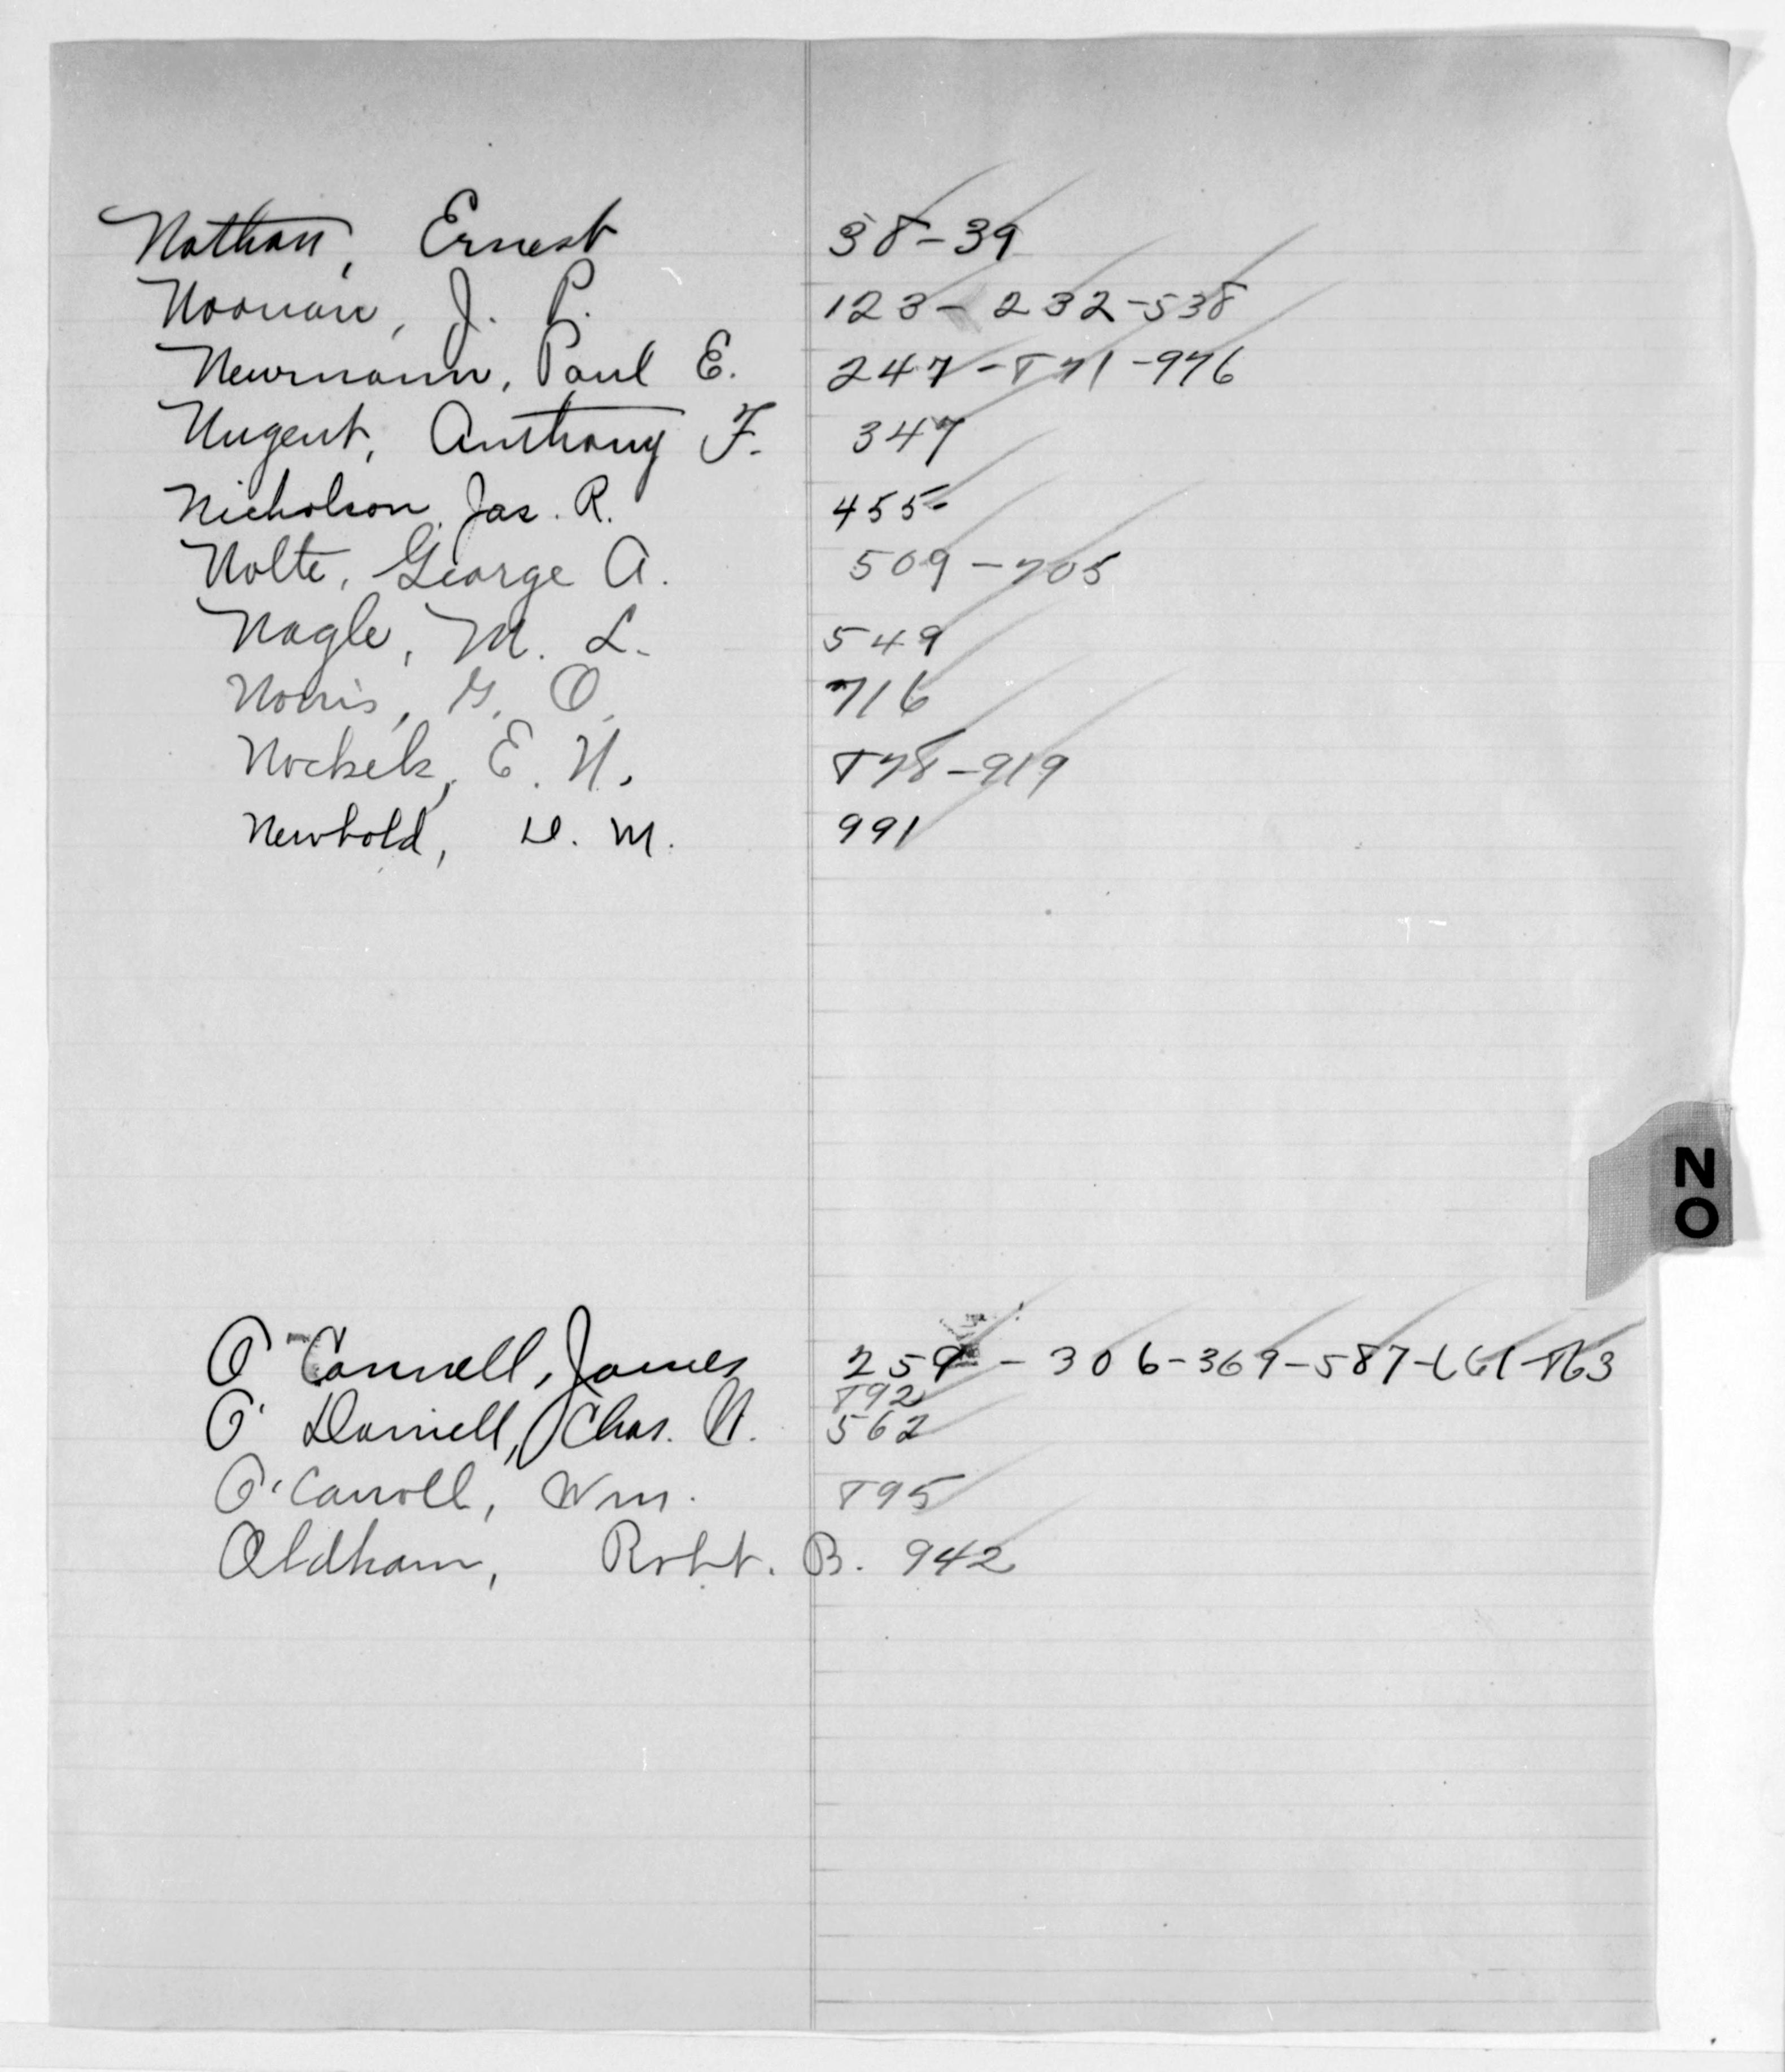 Nathan, Ernest 38-39
Noonan, J. P. 123-232-538
Newmann, Paul E. 247-871-976
Nugent, Anthony F. 347
Nicholson, Jas. R. 455-
Nolte, George A. 509-705
Nagle, M. L. 549
Norris, G. O. 716
Nockels, E. N. 878-919
Newbold, D. M. 991
NO
O'Connell, James 259-306-369-587-661-863
892
O'Donnell, Chas. N. 562
O'Carroll, Wm. 895
Oldham, Robt. B. 942